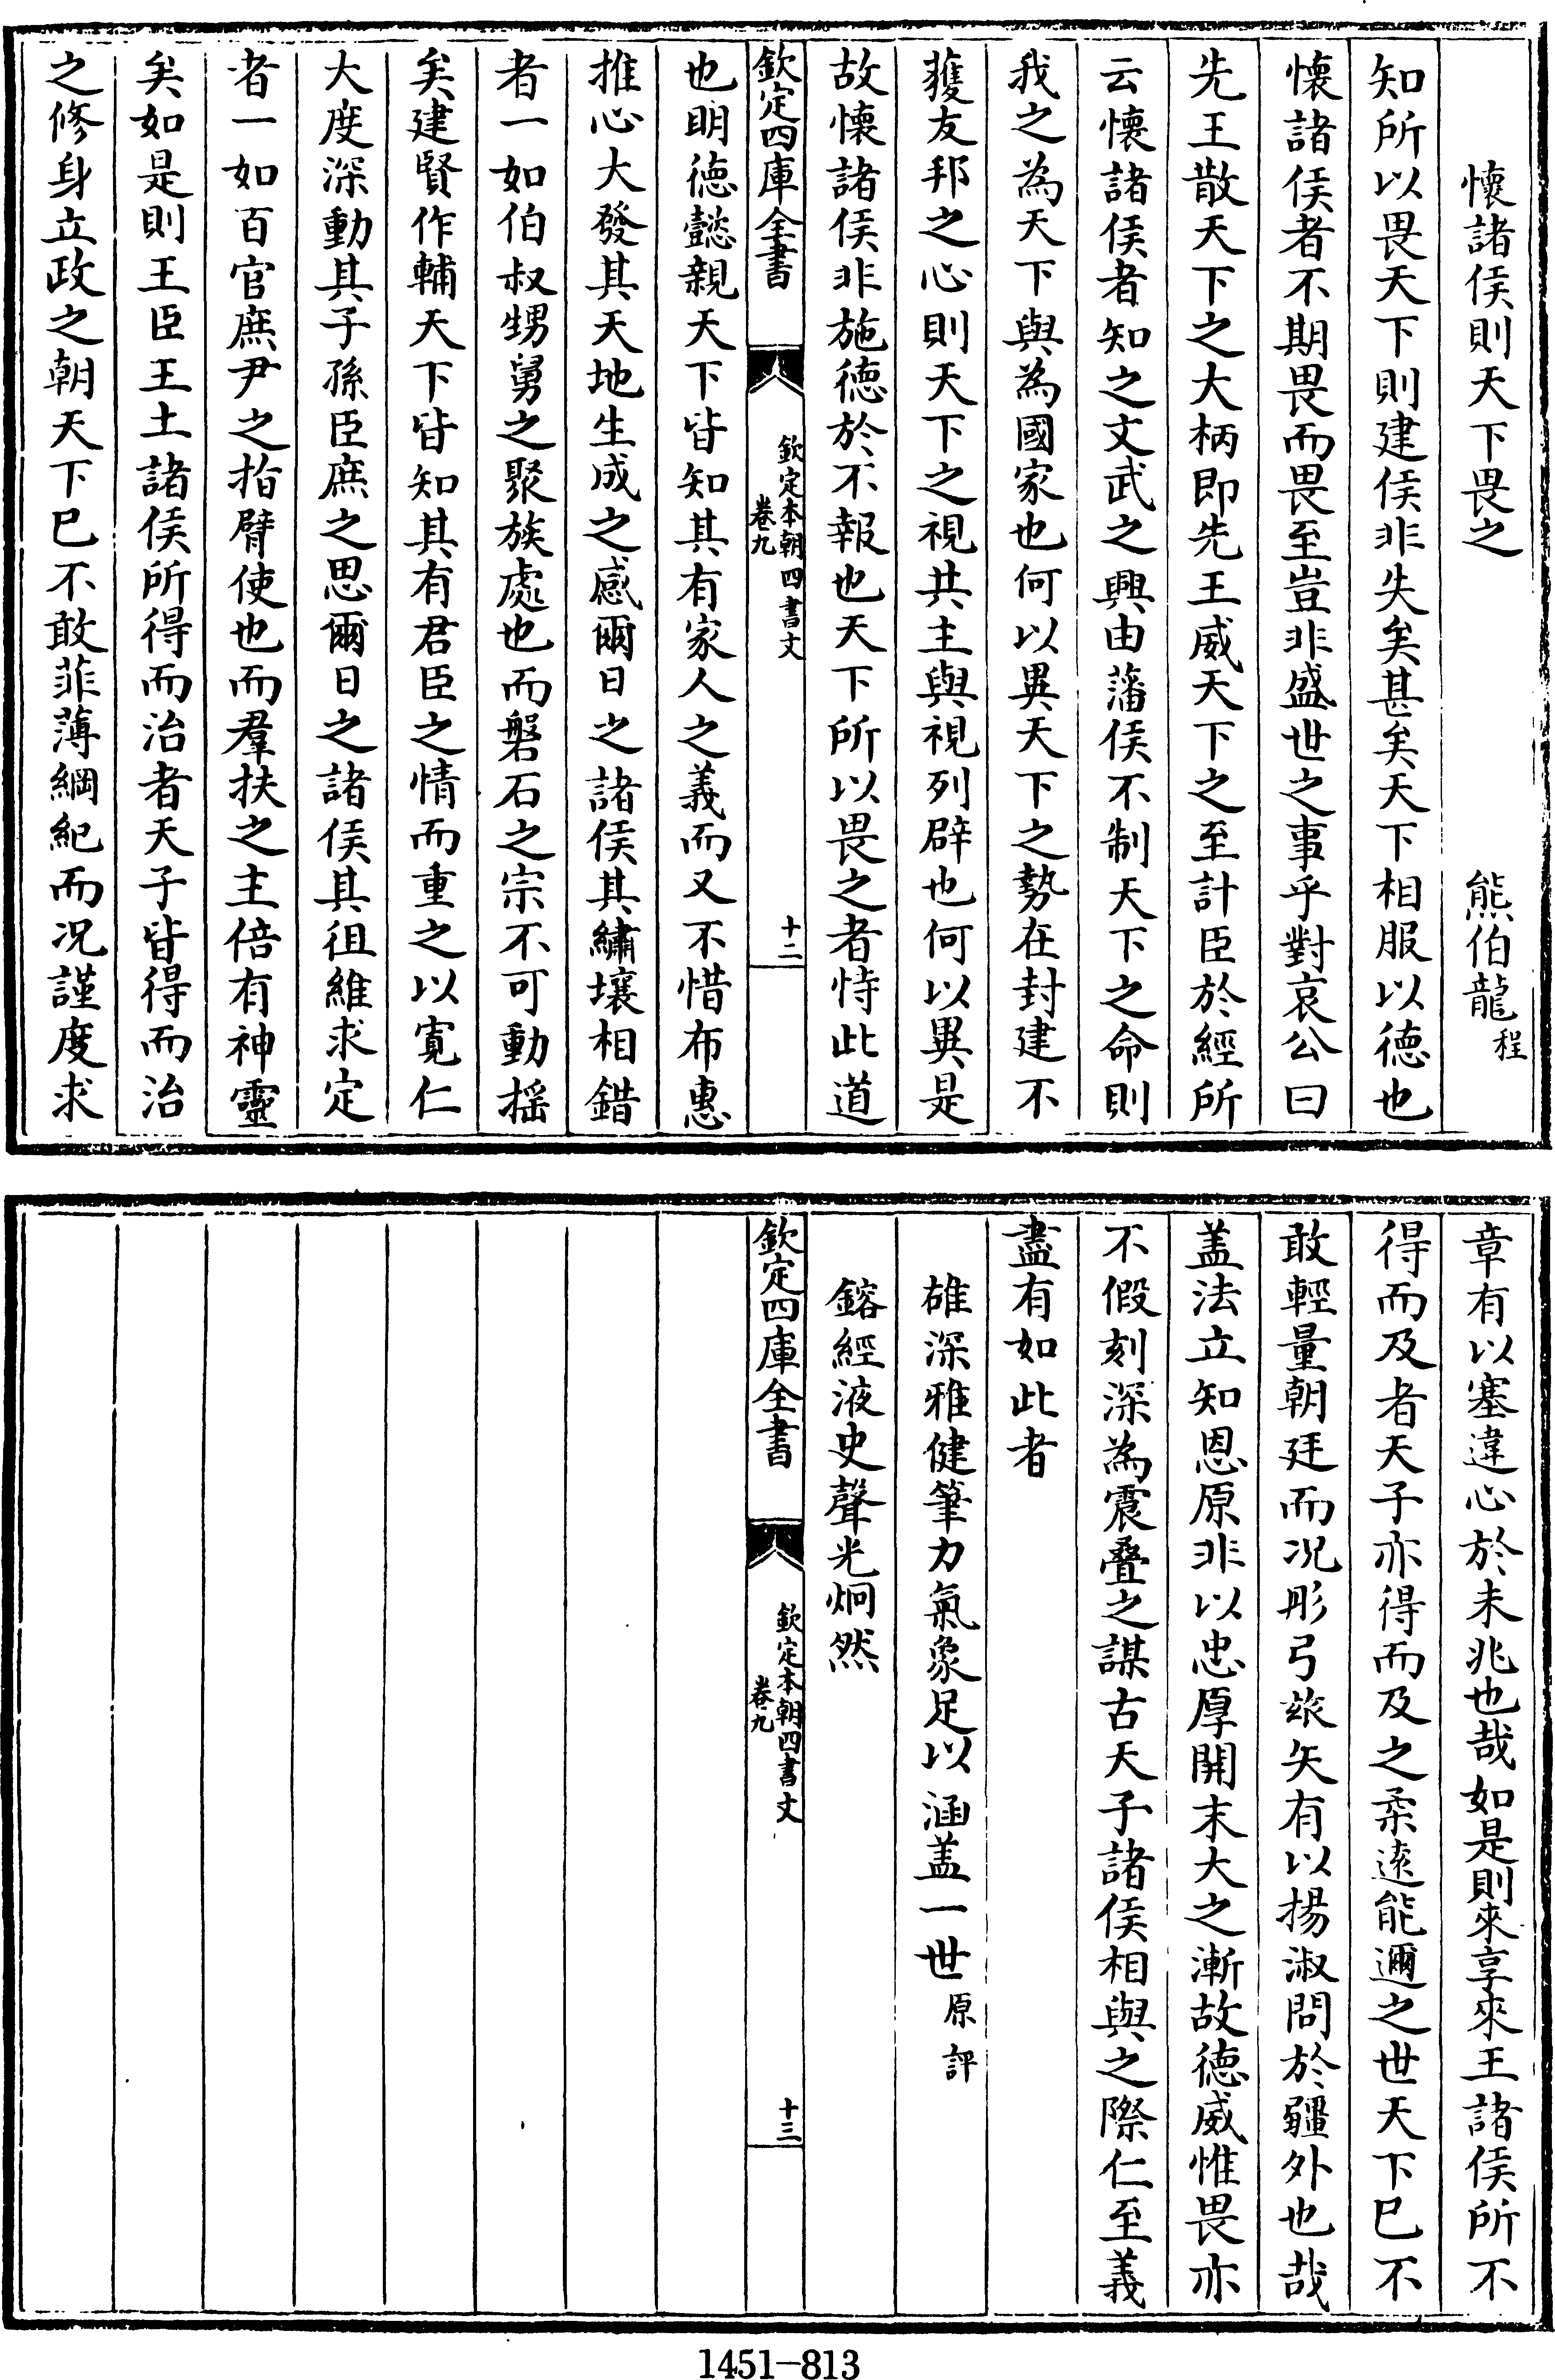 懷諸侯則天下畏之　熊伯龍程
知所以畏天下則建侯非失矣甚矣天下相服以德也
懷諸侯者不期畏而畏至豈非盛世之事乎對哀公曰
先王散天下之大柄即先王威天下之至計臣於經所
云懷諸侯者知之文武之興由藩侯不制天下之命則
我之為天下與為國家也何以異天下之勢在封建不
獲友邦之心則天下之視共主與視列辟也何以異是
故懷諸侯非施德於不報也天下所以畏之者恃此道
欽定四庫全書　欽定本朝四書文卷九　十二
也明德懿親天下皆知其有家人之義而又不惜布惠
推心大發其天地生成之感爾日之諸侯其繡壤相錯
者一如伯叔甥舅之聚族處也而磐石之宗不可動搖
矣建賢作輔天下皆知其有君臣之情而重之以寬仁
大度深動其子孫臣庶之思爾日之諸侯其徂維求定
者一如百官庶尹之指臂使也而羣扶之主倍有神靈
矣如是則王臣王土諸侯所得而治者天子皆得而治
之修身立政之朝天下已不敢菲薄綱紀而况謹度求
章有以塞違心於未兆也哉如是則來享來王諸侯所不
得而及者天子亦得而及之柔遠能邇之世天下已不
敢輕量朝廷而况彤弓玈矢有以揚淑問於疆外也哉
盖法立知恩原非以忠厚開末大之漸故德威惟畏亦
不假刻深為震疊之謀古天子諸侯相與之際仁至義
盡有如此者
雄深雅健筆力氣象足以涵盖一世原評
鎔經液史聲光炯然
欽定四庫全書　欽定本朝四書文卷九　十三
1451-813